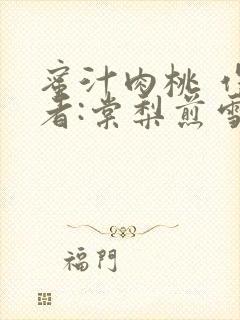 蜜汁肉桃 作
者:棠梨煎雪
福門